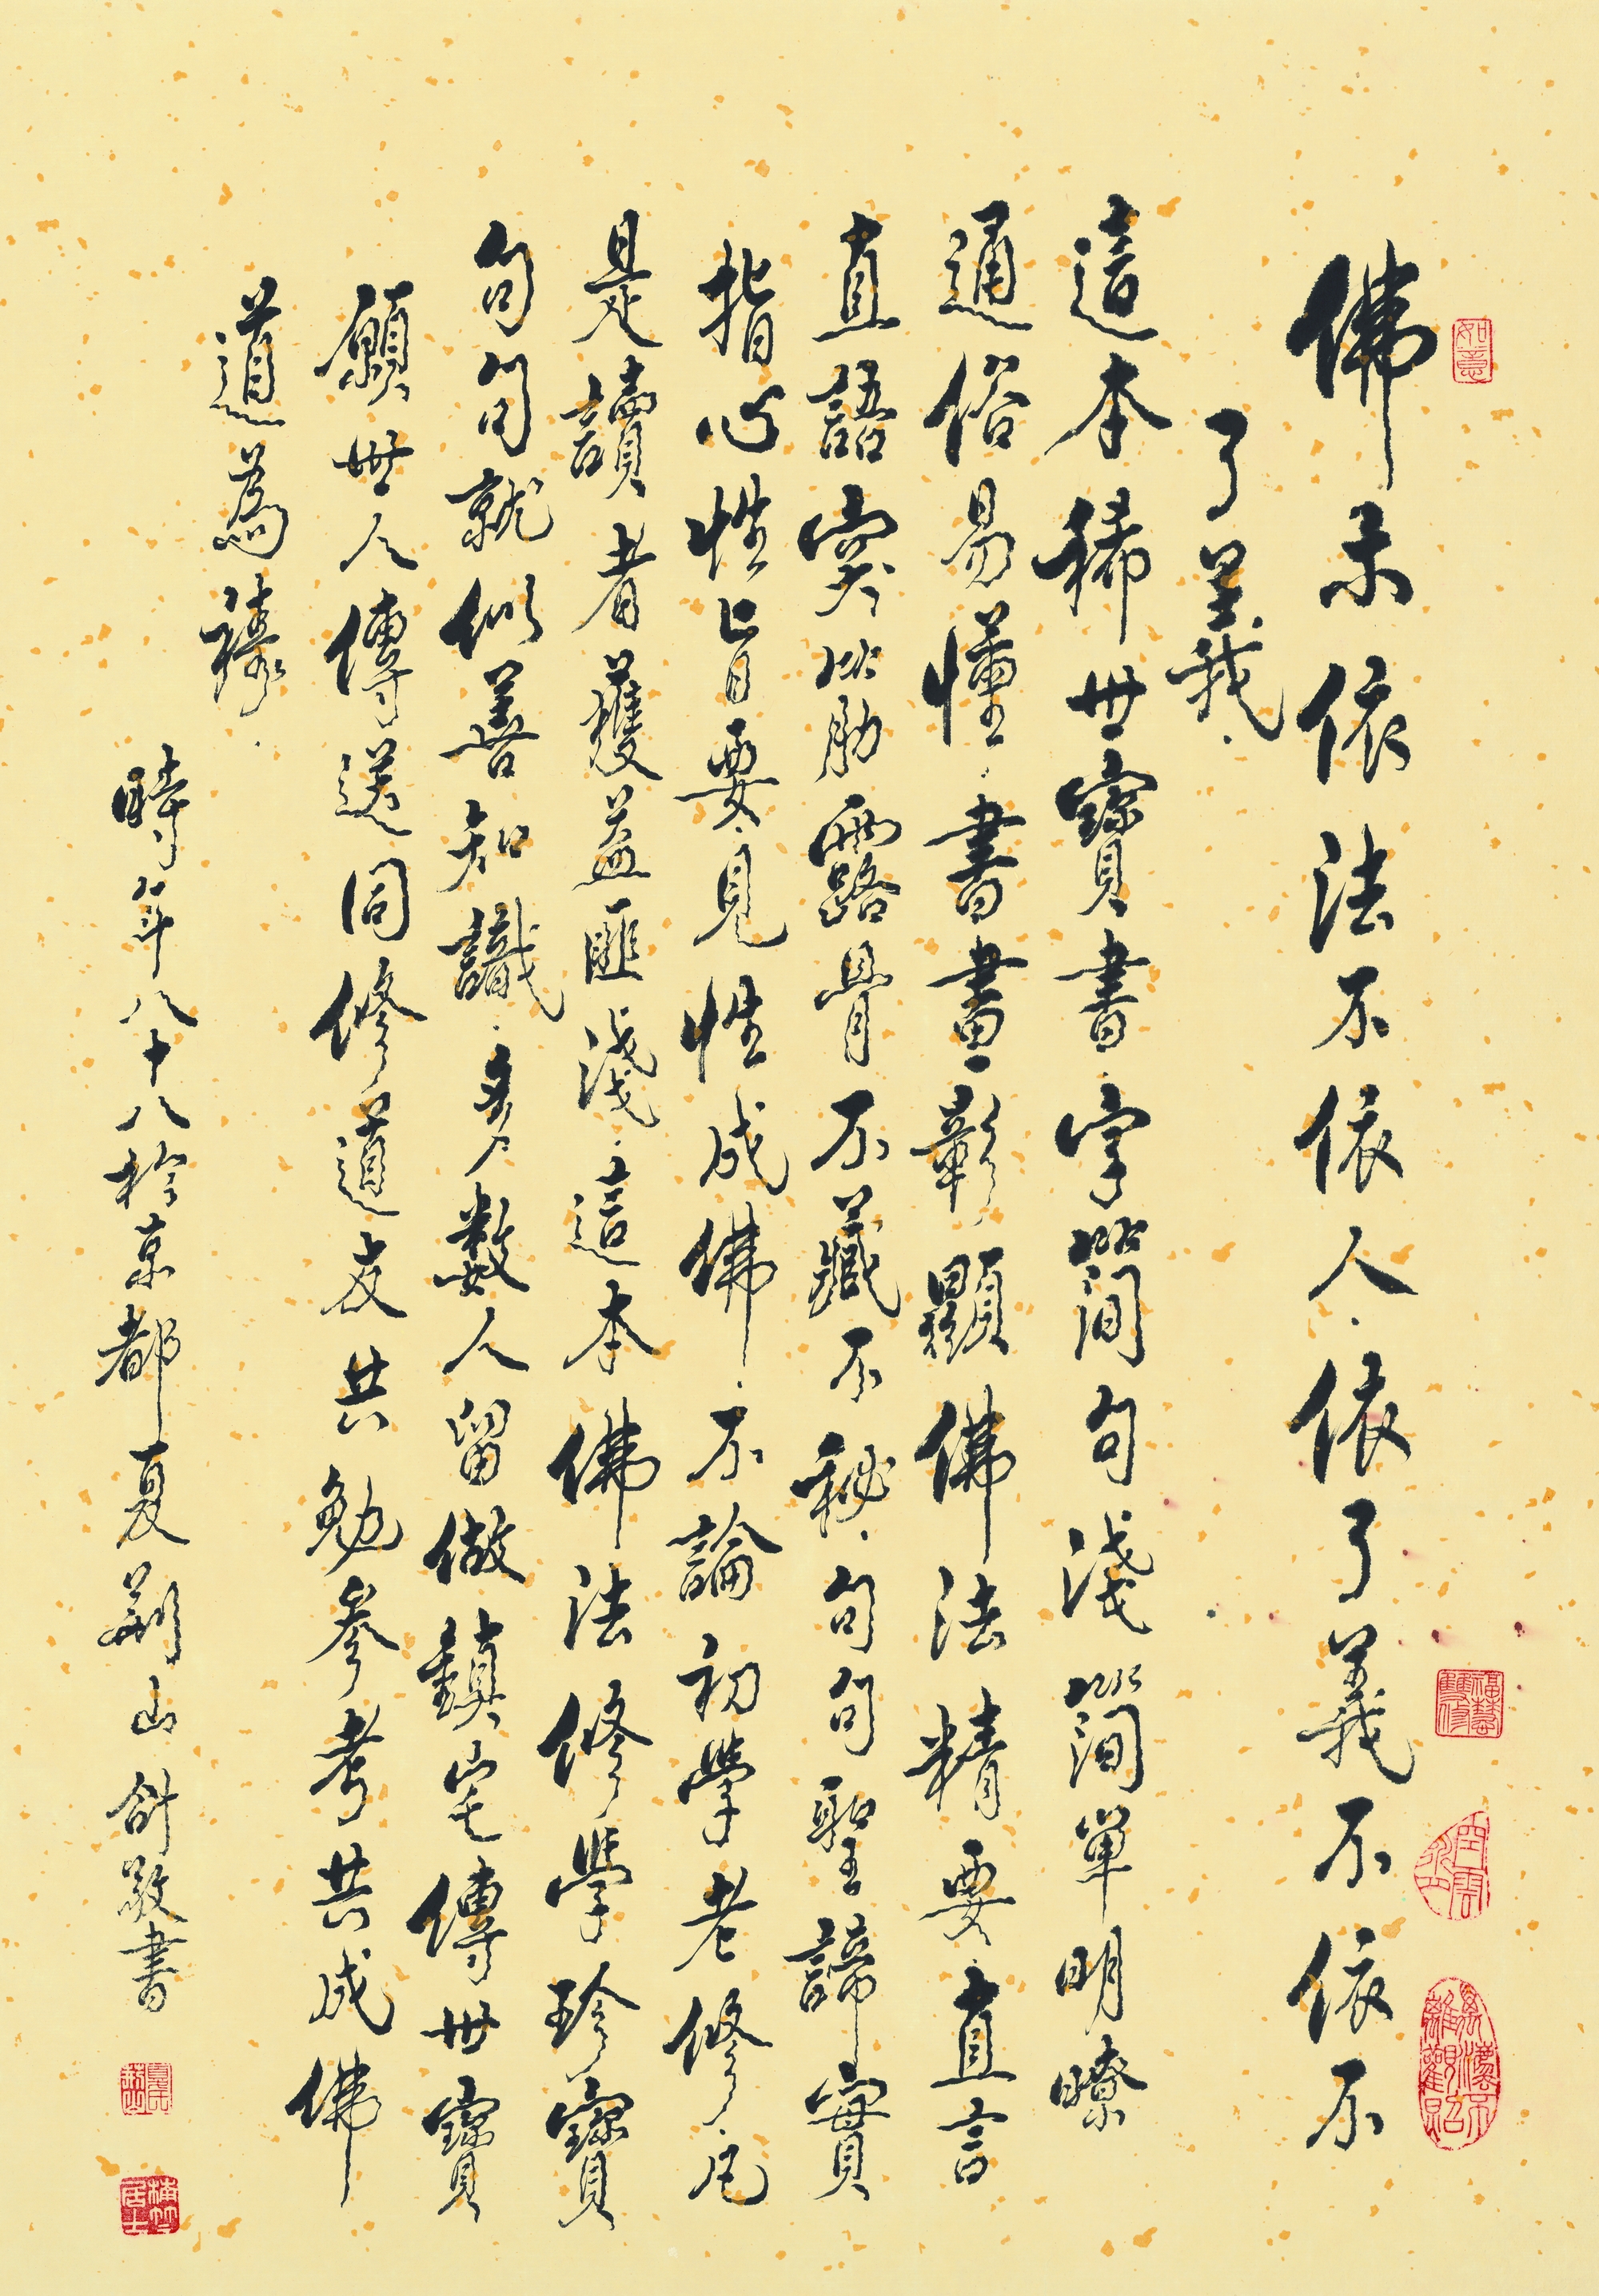 佛示依法不依人.依了義不依不
了義.
這本稀世寶書.字簡句淺簡單明瞭
通俗易懂.書畫彰顯佛法精要.直言
直語突破肋露骨不藏不秘.句句聖諦實
指心性旨要.見性成佛.不論初學老修.凡
是讀者獲益匪淺.這本佛法修學珍寶
句句就似善知識.多數人留做鎮宅傳世寶
願世人傳送同修道友共勉參考共成佛
道為禱.
時年八十八於京都夏荊山創敬書
如意
福慧雙修